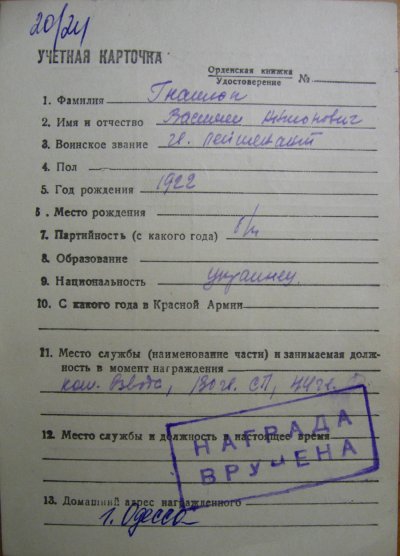 20/24
УЧЕТНАЯ КАРТОЧКА
Орденская книжка
Удостоверение №
1. Фамилия
2. Имя и отчество Василий Антонович
3. Воинское звание гв. лейтенант
4. Пол
5. Год рождения 1922
6. Место рождения
7. Партийность (с какого года) б/п
8. Образование
9. Национальность украинец
10. С какого года в Красной Армии
11. Место службы (наименование части) и занимаемая долж-
ность в момент награждения
ком. взвода, 130 гв. СП, 44 гв.
12. Место службы и должность в настоящее время
НАГРАДА
ВРУЧЕНА
13. Домашний адрес награжденного
г. Одесса